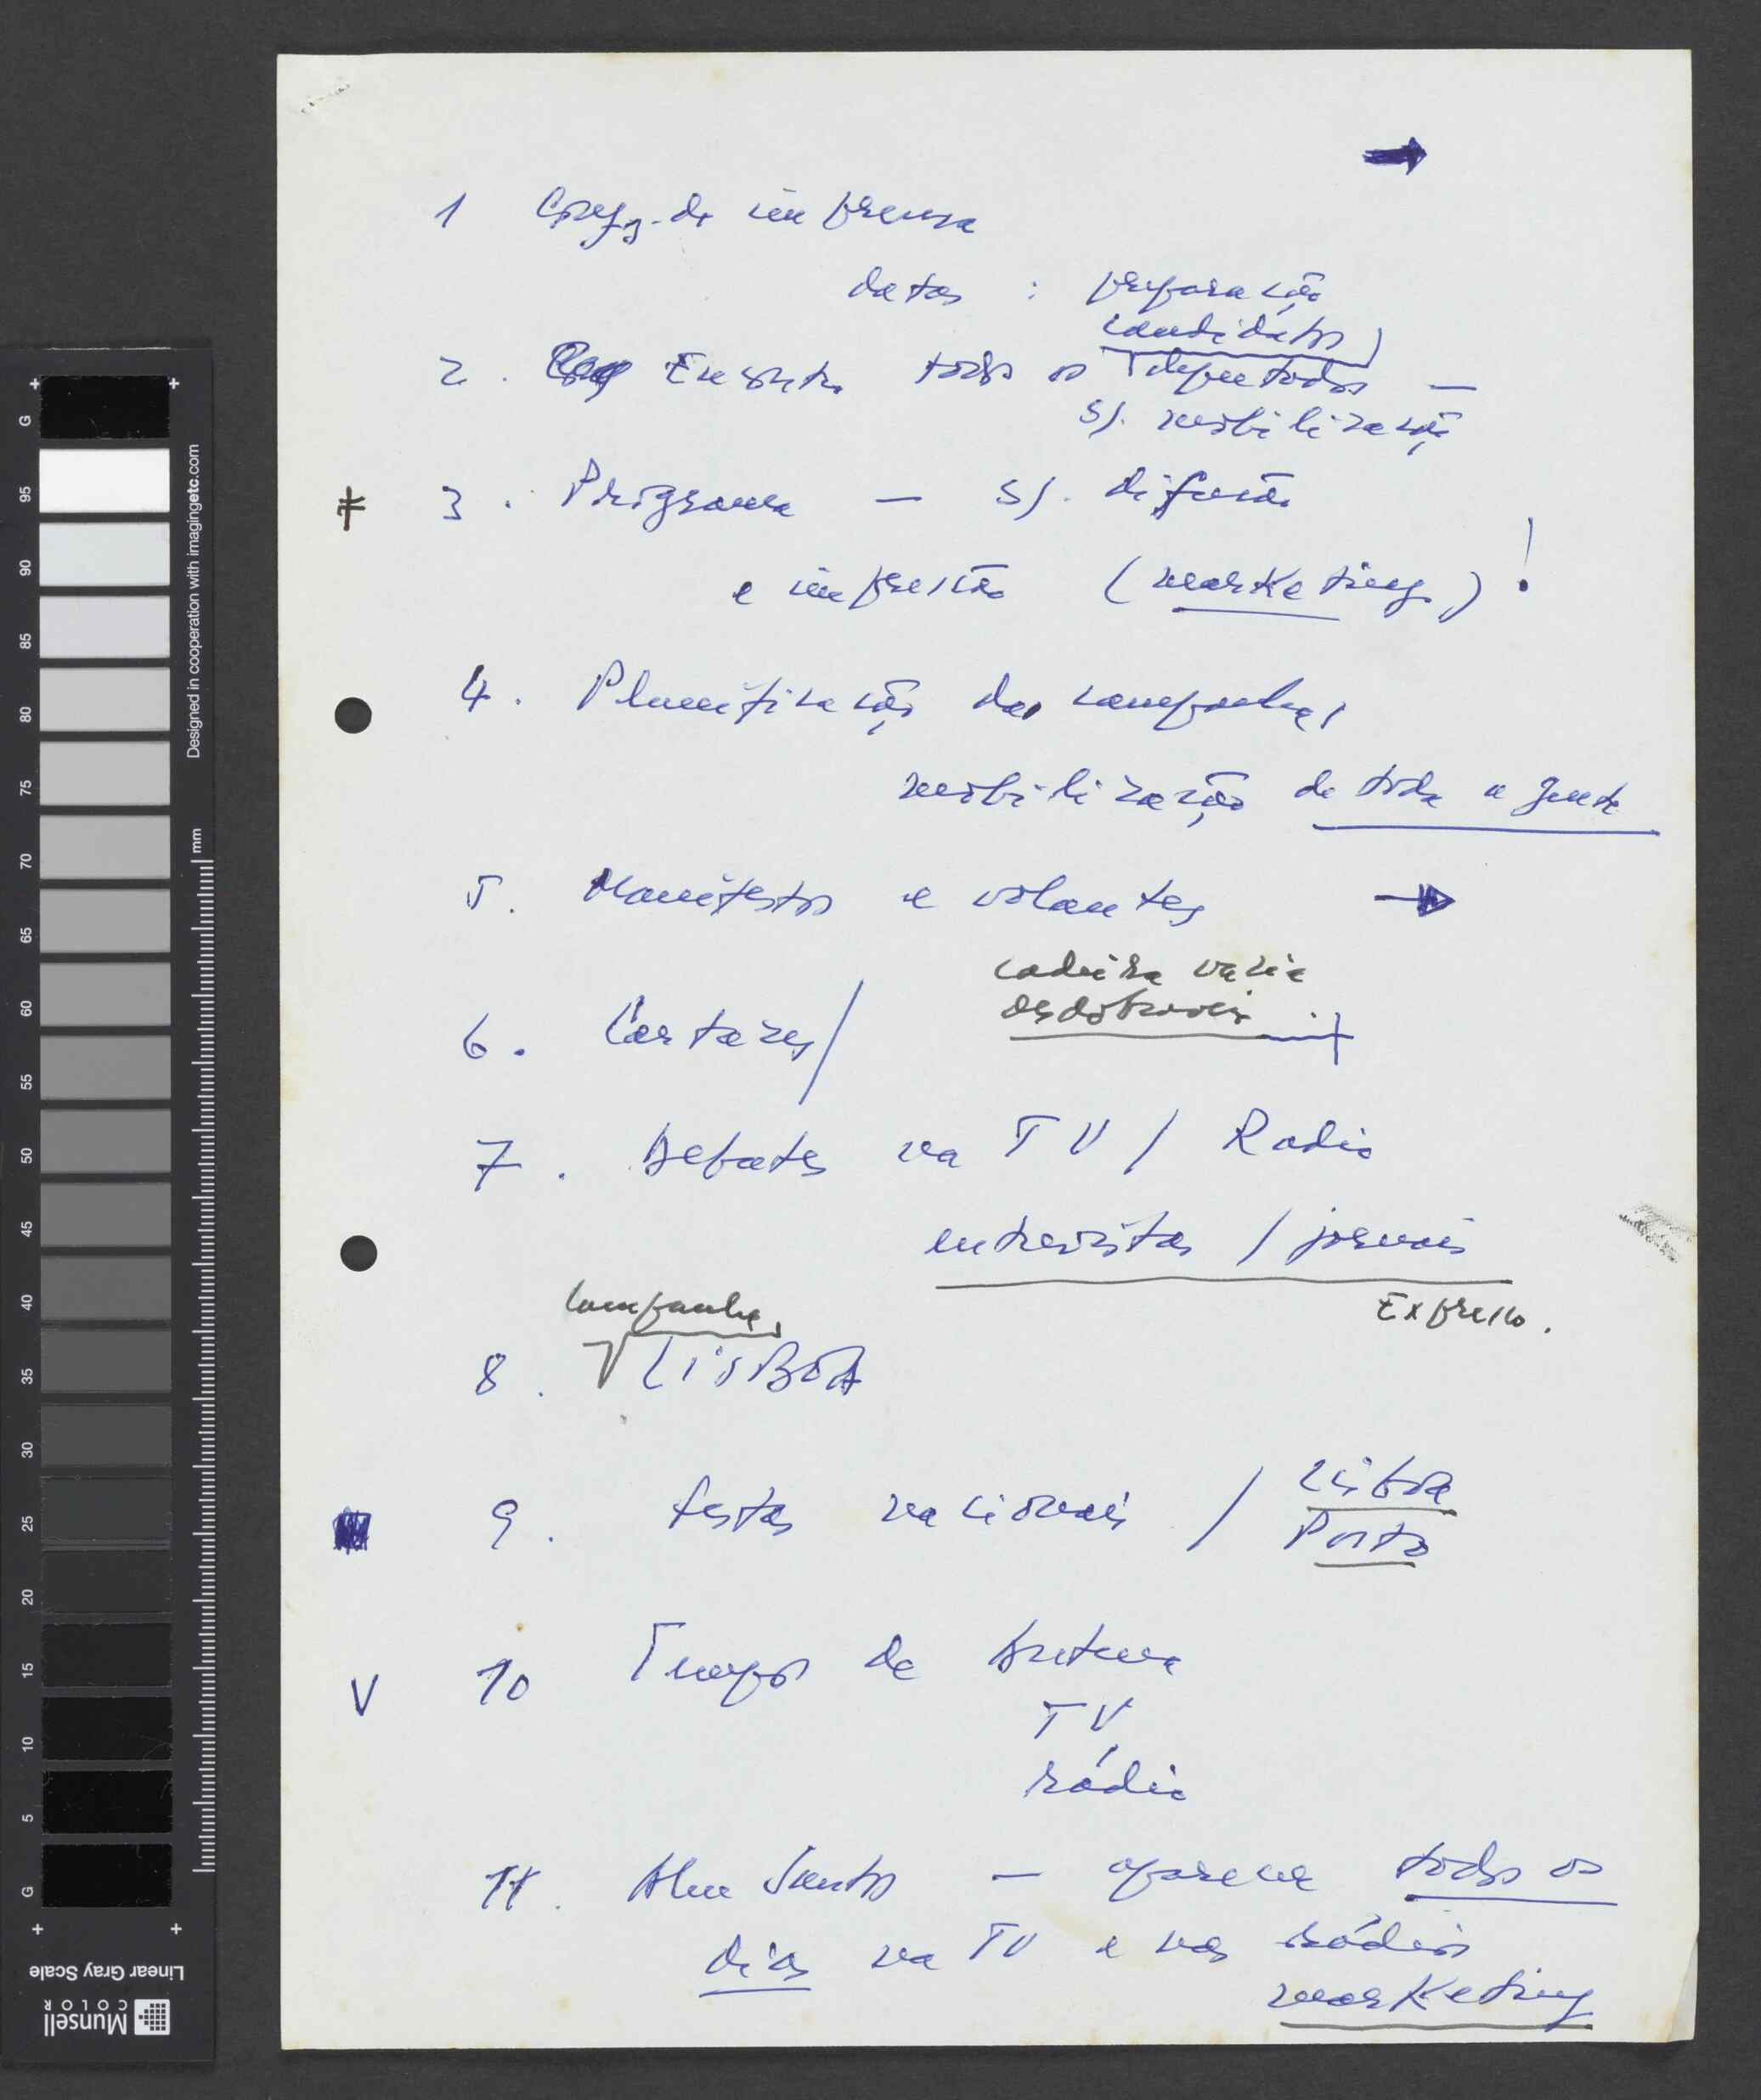 1 de imprensa
datas : preparação
candidatos
2. Encontro todos os deputados —
s/. mobilização
3. Programa — s/. difusão
e impressão (marketing) !
4. Planificação da campanha,
mobilização de toda a gente
5. Manifestos e volantes
cadeira vazia
desdobráveis
6. Cartazes /
7. Debates na TV / Radio
entrevistas / jornais
Expresso.
campanha
8. LISBOA
9. festas nacionais / Lisboa
Porto
10 Tempos de Antena
TV
rádio
11. Alm Santos — aparecer todos os
dias na TV e nas rádios
marketing
Designed in cooperation with imagingetc.com
mm
G
95
90
85
80
75
70
65
60
55
50
45
40
35
30
25
20
15
10
5
G
Linear Gray Scale
Munsell
COLOR